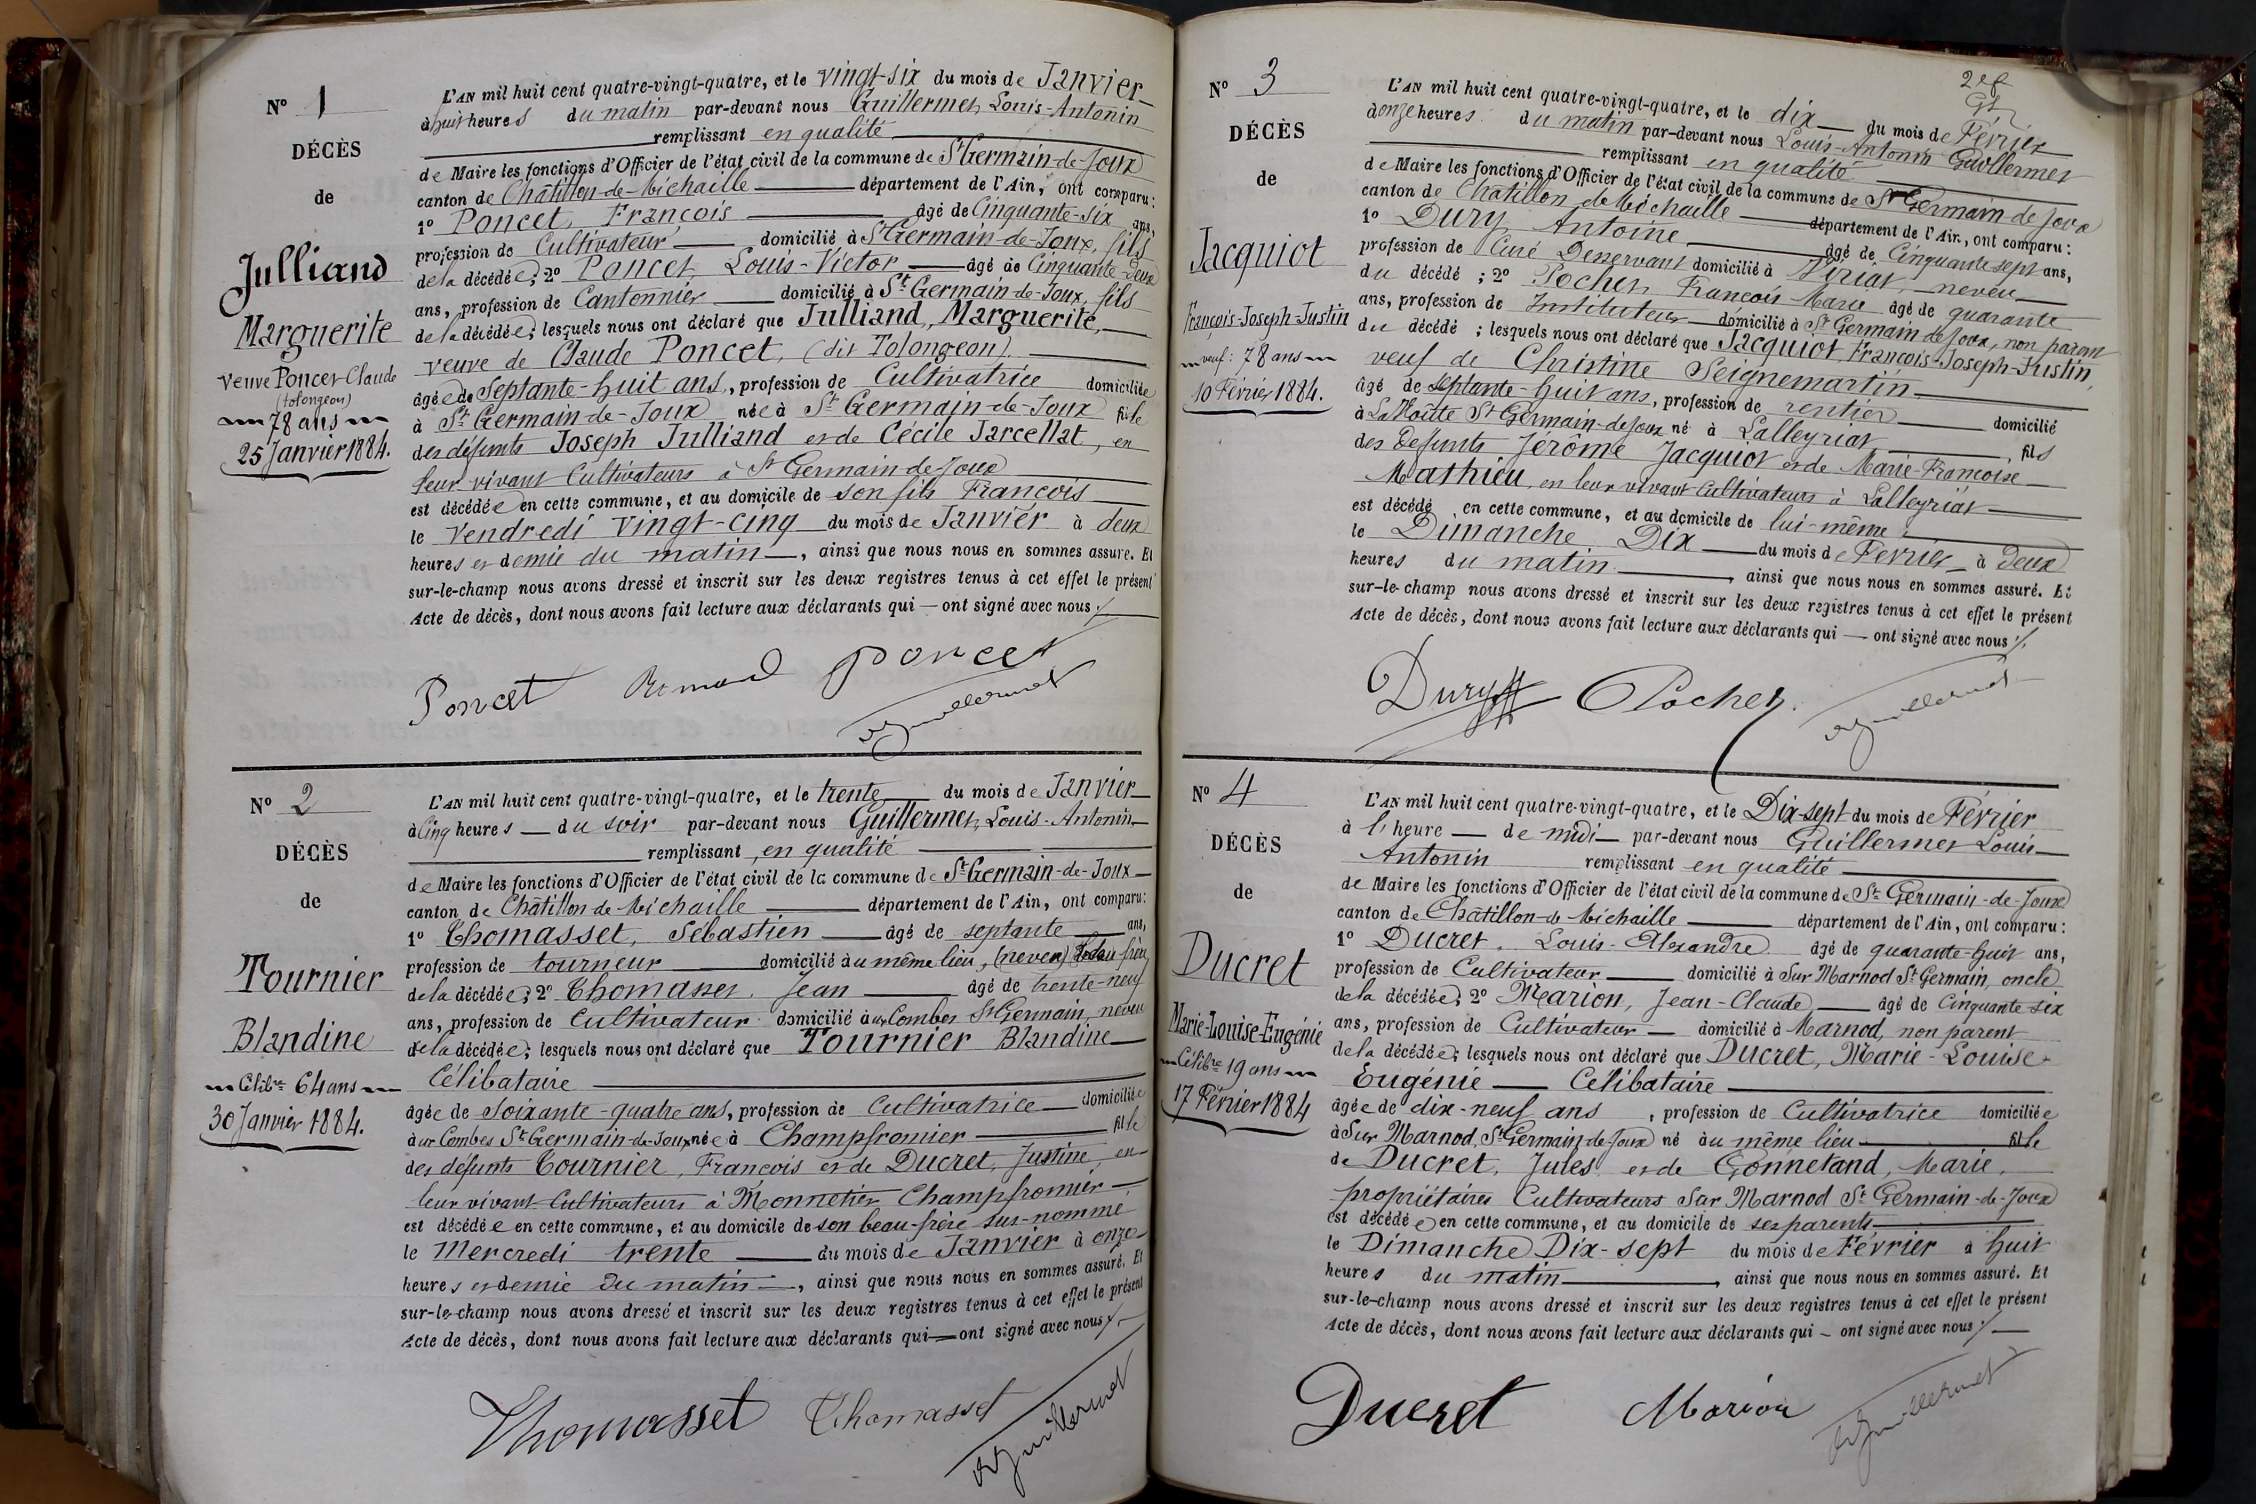 N° 1
DÉCÈS
de
Julliand
Marguerite
Veuve Poncet Claude
(tolongeon)
78 ans
25 Janvier 1884.
L'AN mil huit cent quatre-vingt-quatre, et le vingt-six du mois de Janvier
à huit heures du matin par-devant nous Guillermet, Louis-Antonin
remplissant en qualité
de Maire les fonctions d'Officier de l'état civil de la commune de St Germain-de-Joux
canton de Châtillon-de-Michaille département de l'Ain, ont comparu :
1° Poncet, François âgé de Cinquante-six ans,
profession de Cultivateur domicilié à St Germain-de-Joux, fils
de la décédée ; 2° Poncet, Louis-Victor âgé de Cinquante-deux
ans, profession de Cantonnier domicilié à St Germain-de-Joux, fils
de la décédée ; lesquels nous ont déclaré que Julliand, Marguerite,
veuve de Claude Poncet, (dit Tolongeon).
âgée de Septante-huit ans, profession de Cultivatrice domiciliée
à St Germain-de-Joux née à St Germain-de-Joux fille
des défunts Joseph Julliand et de Cécile Jarcellat, en
leur vivant Cultivateurs à St Germain-de-Joux
est décédée en cette commune, et au domicile de son fils François
le Vendredi vingt-cinq du mois de Janvier à deux
heures et demie du matin, ainsi que nous nous en sommes assuré. Et
sur-le-champ nous avons dressé et inscrit sur les deux registres tenus à cet effet le présent
Acte de décès, dont nous avons fait lecture aux déclarants qui — ont signé avec nous ./.
Poncet Poncet
Guillermet
N° 2
DÉCÈS
de
Tournier
Blandine
Célibre 64 ans
30 Janvier 1884.
L'AN mil huit cent quatre-vingt-quatre, et le trente du mois de Janvier
à Cinq heures du soir par-devant nous Guillermet, Louis-Antonin
remplissant en qualité
de Maire les fonctions d'Officier de l'état civil de la commune de St Germain-de-Joux
canton de Châtillon-de-Michaille département de l'Ain, ont comparu :
1° Thomasset, Sébastien âgé de septante ans,
profession de tourneur domicilié au même lieu, (neveu) beau-frère
de la décédée ; 2° Thomasset, Jean âgé de trente-neuf
ans, profession de Cultivateur domicilié aux Combes St Germain, neveu
de la décédée ; lesquels nous ont déclaré que Tournier Blandine
Célibataire
âgée de Soixante-quatre ans, profession de Cultivatrice domiciliée
aux Combes St Germain-de-Joux née à Champfromier fille
des défunts Tournier, François et de Ducret, Justine en
leur vivant Cultivateurs à Monnetier Champfromier
est décédée en cette commune, et au domicile de son beau-frère sus-nommé
le Mercredi trente du mois de Janvier à onze
heures et demie du matin, ainsi que nous nous en sommes assuré. Et
sur-le-champ nous avons dressé et inscrit sur les deux registres tenus à cet effet le présent
Acte de décès, dont nous avons fait lecture aux déclarants qui — ont signé avec nous ./.
Thomasset Thomasset
Guillermet
N° 3
DÉCÈS
de
Jacquiot
François-Joseph-Justin
veuf : 78 ans
10 Février 1884.
L'AN mil huit cent quatre-vingt-quatre, et le dix du mois de Février
à onze heures du matin par-devant nous Louis-Antonin Guillermet
remplissant en qualité
de Maire les fonctions d'Officier de l'état civil de la commune de St Germain-de-Joux
canton de Châtillon de Michaille département de l'Ain, ont comparu :
1° Dury, Antoine âgé de Cinquante sept ans,
profession de Curé Desservant domicilié à Viriat, neveu
du décédé ; 2° Pochet, François Marie âgé de quarante
ans, profession de Instituteur domicilié à St Germain de Joux, non parent
du décédé ; lesquels nous ont déclaré que Jacquiot François-Joseph-Justin,
veuf de Christine Seignemartin
âgé de septante-huit ans, profession de rentier domicilié
à La Voûte St Germain-de-Joux né à Lalleyriat fils
des défunts Jérôme Jacquiot et de Marie-Françoise
Mathieu en leur vivant Cultivateurs à Lalleyriat
est décédé en cette commune, et au domicile de lui-même
le Dimanche Dix du mois de Février à deux
heures du matin, ainsi que nous nous en sommes assuré. Et
sur-le-champ nous avons dressé et inscrit sur les deux registres tenus à cet effet le présent
Acte de décès, dont nous avons fait lecture aux déclarants qui — ont signé avec nous ./.
Dury Pochet
Guillermet
N° 4
DÉCÈS
de
Ducret
Marie-Louise-Eugénie
Célibre 19 ans
17 Février 1884
L'AN mil huit cent quatre-vingt-quatre, et le Dix-sept du mois de Février
à l'heure de midi par-devant nous Guillermet Louis
Antonin remplissant en qualité
de Maire les fonctions d'Officier de l'état civil de la commune de St Germain-de-Joux
canton de Châtillon-de Michaille département de l'Ain, ont comparu :
1° Ducret, Louis-Alexandre âgé de quarante-huit ans,
profession de Cultivateur domicilié à Sur Marnod St Germain, oncle
de la décédée ; 2° Marion, Jean-Claude âgé de Cinquante six
ans, profession de Cultivateur domicilié à Marnod, non parent
de la décédée ; lesquels nous ont déclaré que Ducret, Marie-Louise-
Eugénie Célibataire
âgée de dix-neuf ans, profession de Cultivatrice domiciliée
à Sur Marnod, St Germain-de-Joux né au même lieu fille
de Ducret, Jules et de Gonnetand, Marie,
propriétaires Cultivateurs Sur Marnod St Germain-de-Joux
est décédée en cette commune, et au domicile de ses parents
le Dimanche Dix-sept du mois de Février à huit
heures du matin, ainsi que nous nous en sommes assuré. Et
sur-le-champ nous avons dressé et inscrit sur les deux registres tenus à cet effet le présent
Acte de décès, dont nous avons fait lecture aux déclarants qui — ont signé avec nous ./.
Ducret Marion
Guillermet